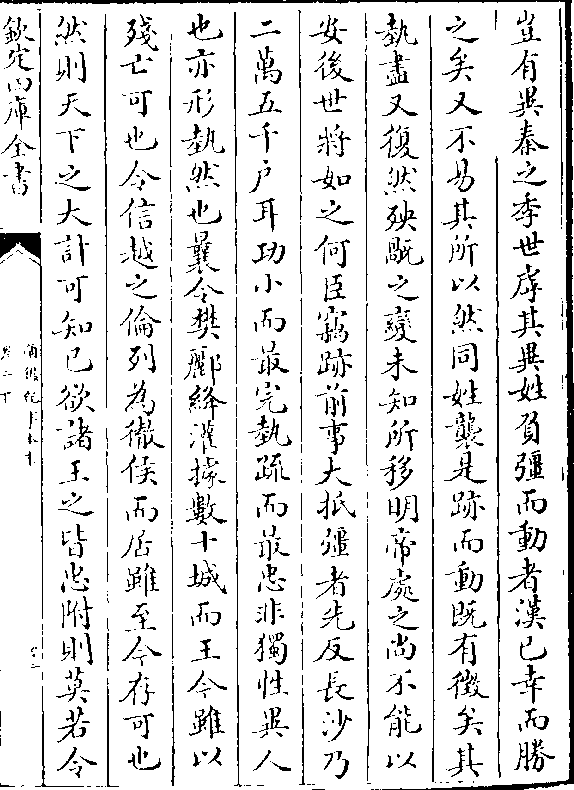 豈有異秦之季世虖其異姓負彊而動者漢已幸而勝
之矣又不易其所以然同姓襲是跡而動既有徵矣其
埶盡又復然殃旤之變未知所移明帝處之尚不能以
安後世將如之何臣竊跡前事大抵彊者先反長沙乃
二萬五千户耳功小而最完埶疏而最忠非獨性異人
也亦形埶然也曩令樊酈絳灌據數十城而王今雖以
殘亡可也令信越之倫列為徹侯而居雖至今存可也
然則天下之大計可知已欲諸王之皆忠附則莫若令
欽定四庫全書